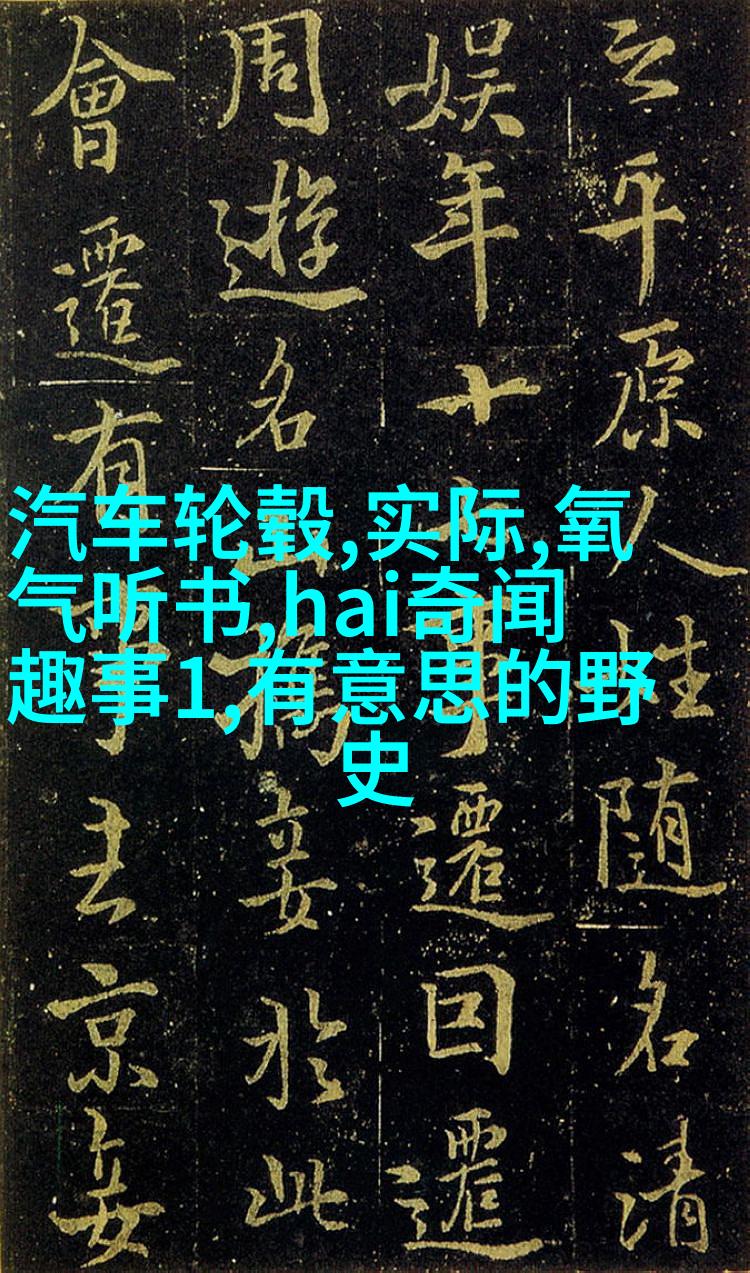 汽车轮毂,实际,氧
气听书,hai奇闻
趣事1,有意思的野
史
之平原人姓随名清
娱年十事遷回遷
周遊名山携妾於此
會遷有事去京妾